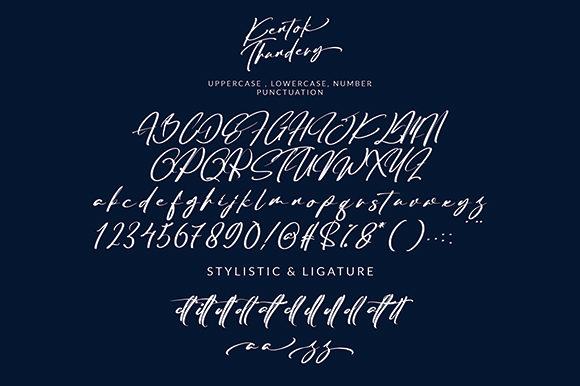 Kentok
Thundery
UPPERCASE , LOWERCASE, NUMBER
PUNCTUATION
ABCDEFGHIJKLMN
OPQRSTUVWXYZ
abcdefghijklmnopqrstuvwxyz
1234567890/@#$%&*().,:;
STYLISTIC & LIGATURE